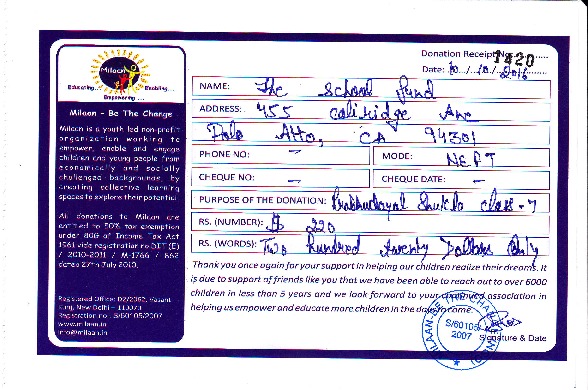 Donation Receipt No. 1420
Date: 10/10/2016
Milaan
Educating... Enabling...
Empowering...
Milaan - Be The Change
Milaan is a youth led non-profit
organization working to
empower, enable and engage
children and young people from
economically and socially
challenged backgrounds, by
creating collective learning
spaces to explore their potential.
All donations to Milaan are
entitled to 50% tax exemption
under 80G of Income Tax Act
1961 vide registration no DIT (E)
/ 2010-2011 / M-1766 / 662
dated 27th July 2010.
Registered Office: D2/2062, Vasant
Kunj, New Delhi - 110070
Registration no : S/60105/2007
www.milaan.in
info@milaan.in
NAME: The School fund
ADDRESS: 455 Ave
Palo Alto, CA 94301
PHONE NO: –
MODE: NEFT
CHEQUE NO: –
CHEQUE DATE: –
PURPOSE OF THE DONATION: Prabhudayal Shukla class-7
RS. (NUMBER): $ 220
RS. (WORDS): Two hundred twenty Dollars Only
Thank you once again for your support in helping our children realize their dreams. It
is due to support of friends like you that we have been able to reach out to over 6000
children in less than 5 years and we look forward to your continued association in
helping us empower and educate more children in the days to come.
S/60105/
2007
Signature & Date